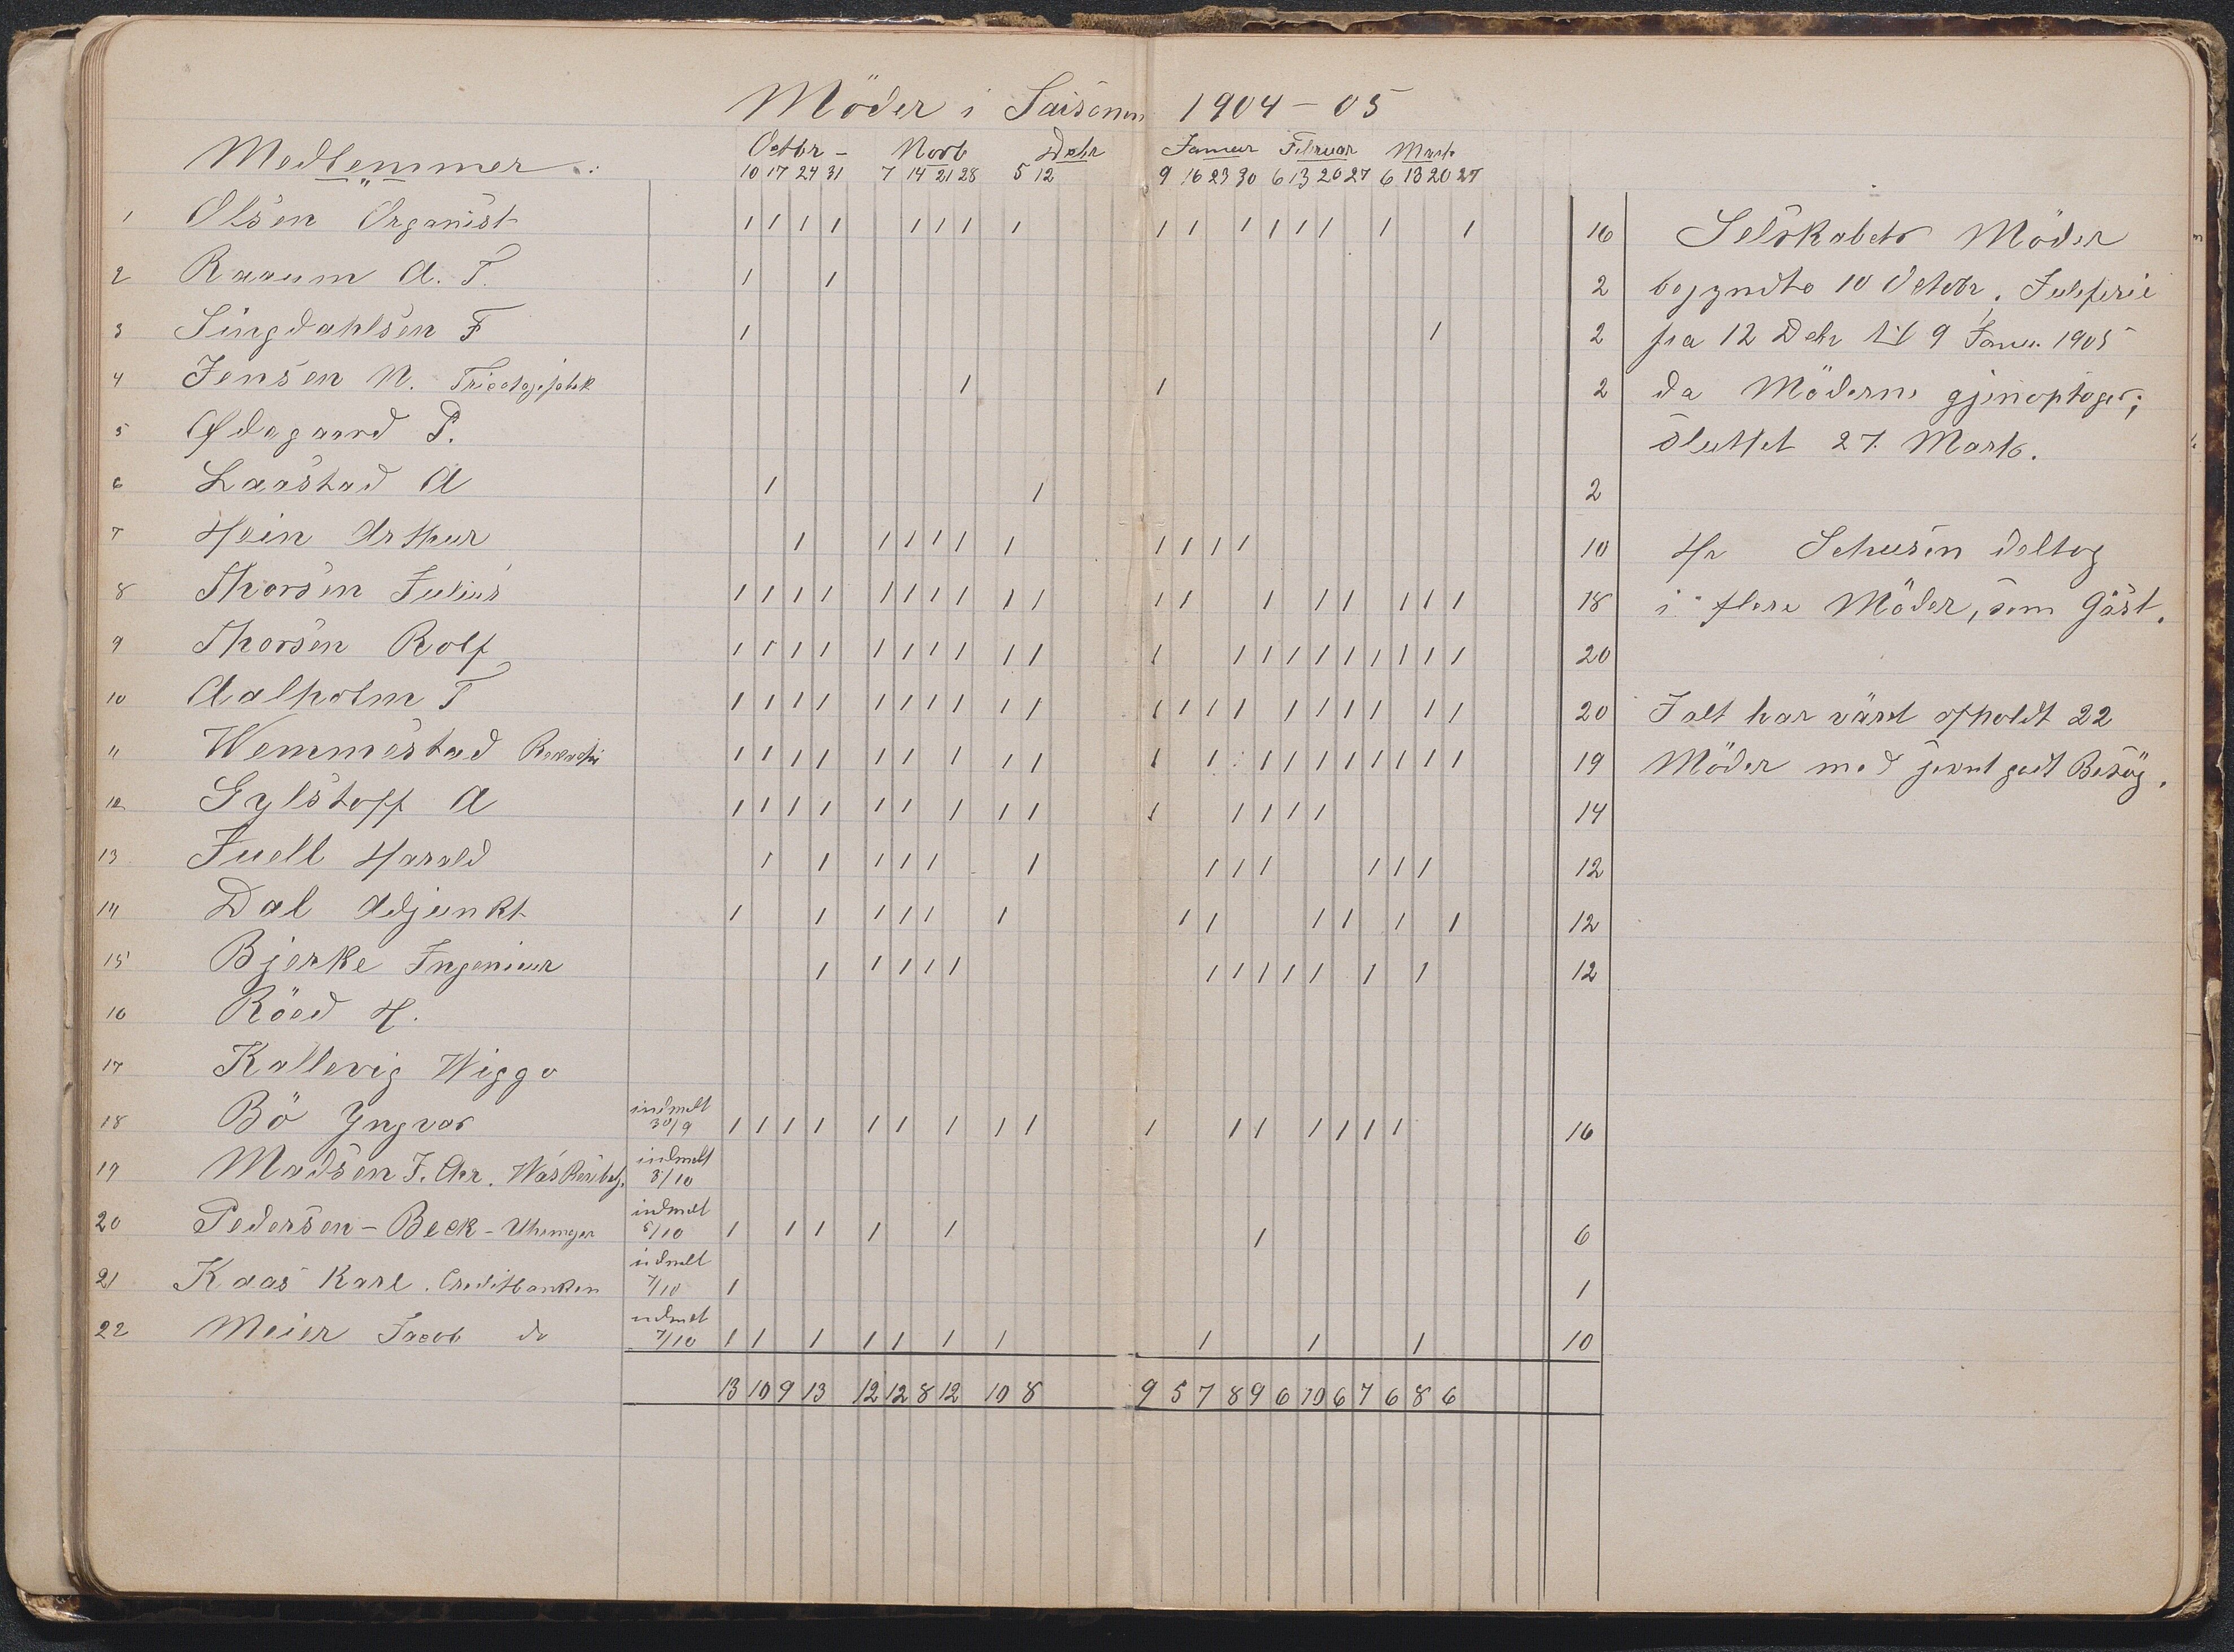 Möder i Saisonen 1904-05
Medlemmer:
Octbr - Novb Debr Januar Februar Marts
10 17 24 31 7 14 21 28 5 12 9 16 23 30 6 13 20 27 6 13 20 27
1 Olsen Organist 1 1 1 1 1 1 1 1 1 1 1 1 1 1 1 1 16
2 Raaum A. T. 1 1 2
3 Lingdahlsen F 1 1 2
4 Jensen N. 1 1 2
5 Ødegaard P.
6 Laastad A 1 1 2
7 Hein Arthur 1 1 1 1 1 1 1 1 1 1 10
8 Thorsen Julius 1 1 1 1 1 1 1 1 1 1 1 1 1 1 1 1 1 1 18
9 Thorsen Rolf 1 1 1 1 1 1 1 1 1 1 1 1 1 1 1 1 1 1 1 1 20
10 Aalholm T 1 1 1 1 1 1 1 1 1 1 1 1 1 1 1 1 1 1 1 1 20
11 Wemmestad 1 1 1 1 1 1 1 1 1 1 1 1 1 1 1 1 1 1 1 19
12 Gylstoff A 1 1 1 1 1 1 1 1 1 1 1 1 1 1 14
13 Juell Harald 1 1 1 1 1 1 1 1 1 1 1 1 12
14 Dal Adjunkt 1 1 1 1 1 1 1 1 1 1 1 1 12
15 Bjerke Ingeniør 1 1 1 1 1 1 1 1 1 1 1 1 12
16 Röed H.
17 Kallevig Wiggo
18 Bö Yngvar indmelt 30/9 1 1 1 1 1 1 1 1 1 1 1 1 1 1 1 1 16
19 Madsen J. Chr. indmelt 3/10
20 Pedersen-Beck- indmelt 5/10 1 1 1 1 1 1 6
21 Kaas Karl. Creditbanken indmelt 7/10 1 1
22 Meier Jacob do indmelt 7/10 1 1 1 1 1 1 1 1 1 1 10
13 10 9 13 12 12 8 12 10 8 9 5 7 8 9 6 10 6 7 6 8 6
Selskabets Möder
begyndte 10 Octobr, Juleferie
fra 12 Debr til 9 Januar 1905
da Möderne gjenoptoges;
sluttet 27. Marts.
Hr Schusen deltog
i flere Möder, som Gäst.
Ialt har värt afholdt 22
Möder med jevnt godt Besög.